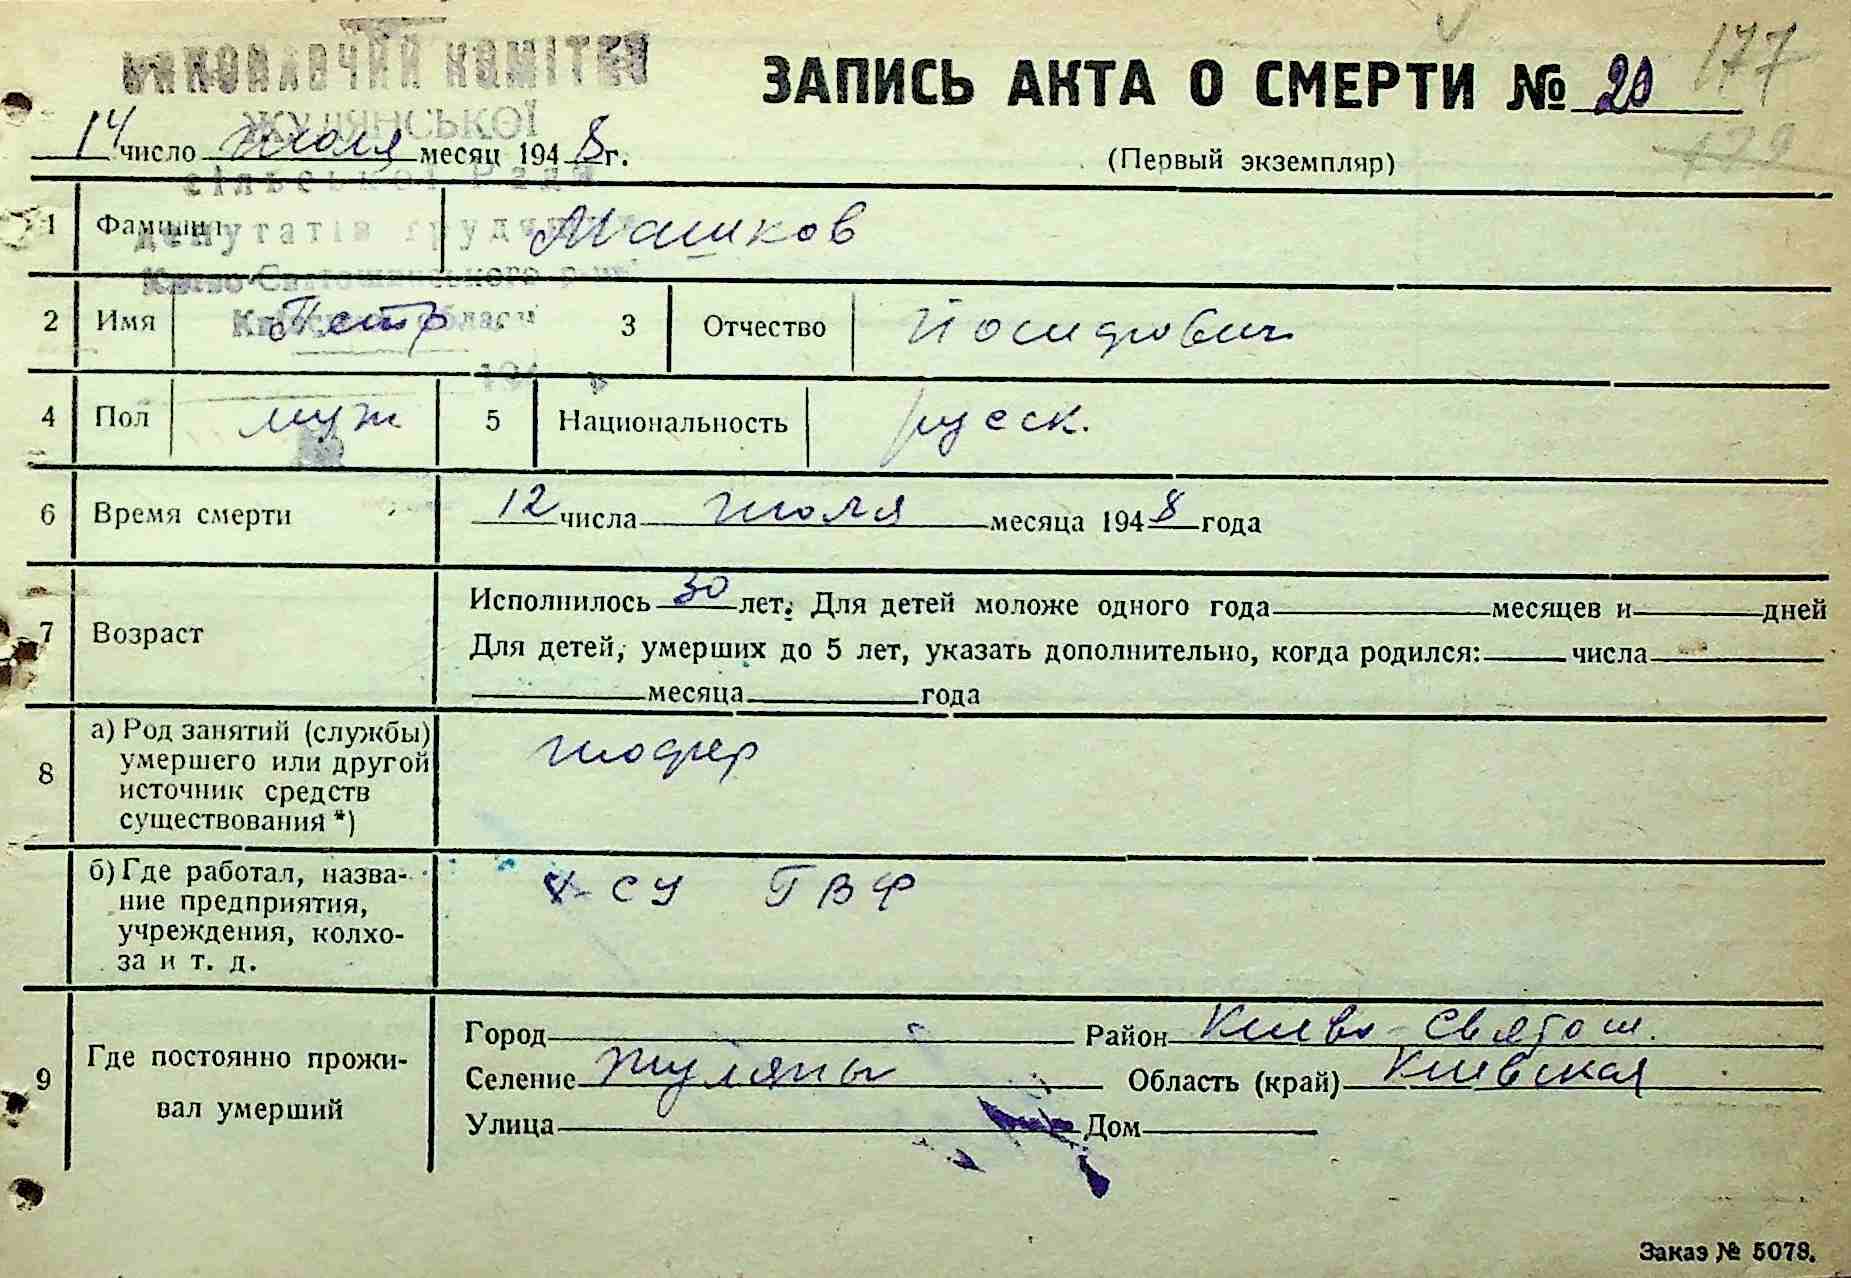 ВИКОНАВЧИЙ КОМІТЕТ
ЖУЛЯНСЬКОЇ
сільської Ради
депутатів трудящих
Києво-Святошинського р-ну
Київської області
194 р
ЗАПИСЬ АКТА О СМЕРТИ № 20
177
179
14 число июля месяц 1948 г.
(Первый экземпляр)
1 Фамилия Машков
2 Имя Петр 3 Отчество Йосифович
4 Пол муж 5 Национальность русск.
6 Время смерти 12 числа июля месяца 1948 года
7 Возраст
Исполнилось 30 лет. Для детей моложе одного года месяцев и дней
Для детей, умерших до 5 лет, указать дополнительно, когда родился: числа
месяца года
8 а) Род занятий (службы) умершего или другой источник средств существования *)
шофер
б) Где работал, назва-
ние предприятия,
учреждения, колхо-
за и т. д.
СУ ГВФ
9 Где постоянно прожи-
вал умерший
Город Район Киево-Святош.
Селение Жуляны Область (край) Киевская
Улица Дом
Заказ № 5078.